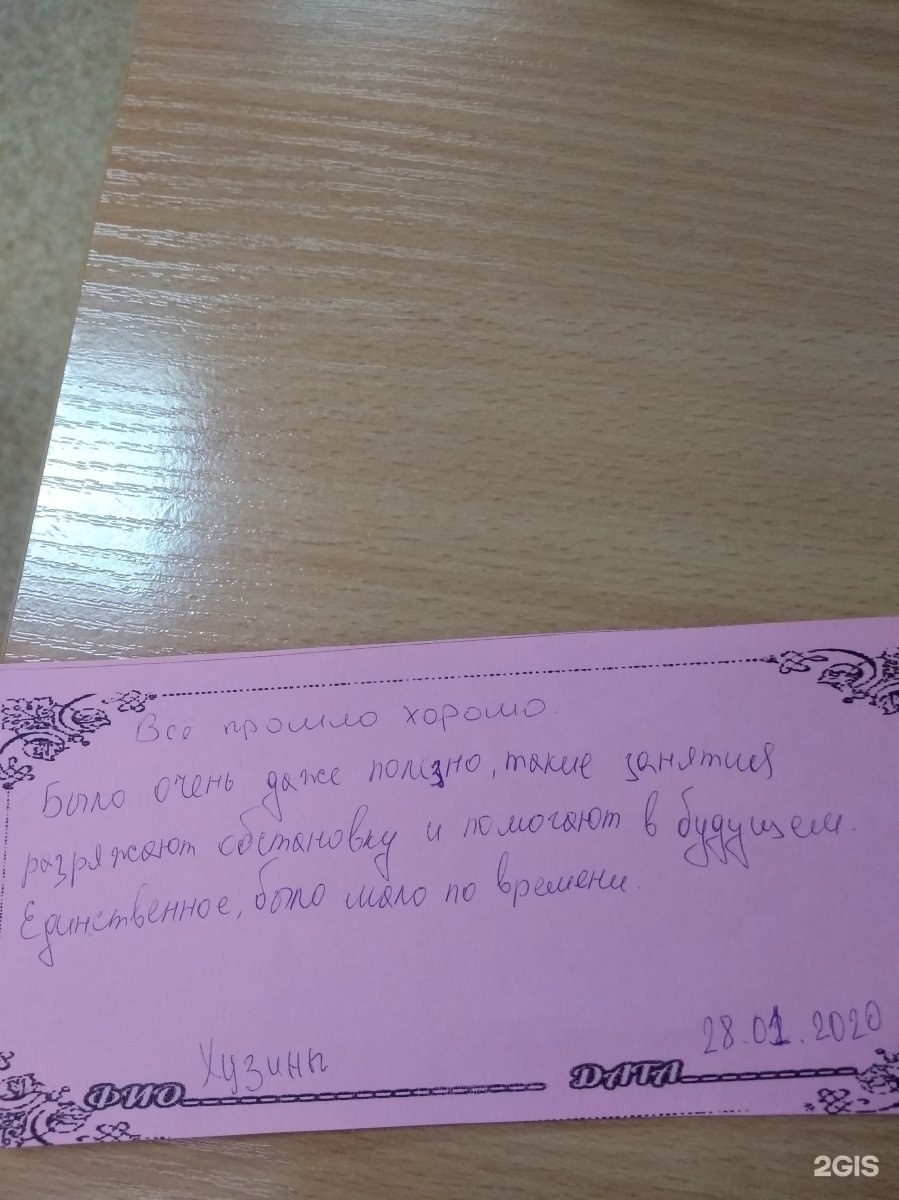 Всё прошло хорошо.
Было очень даже полезно, такие занятия
разряжают обстановку и помогают в будущем.
Единственное, было мало по времени.
Хузины 28.01.2020
ФИО ДАТА
2GIS